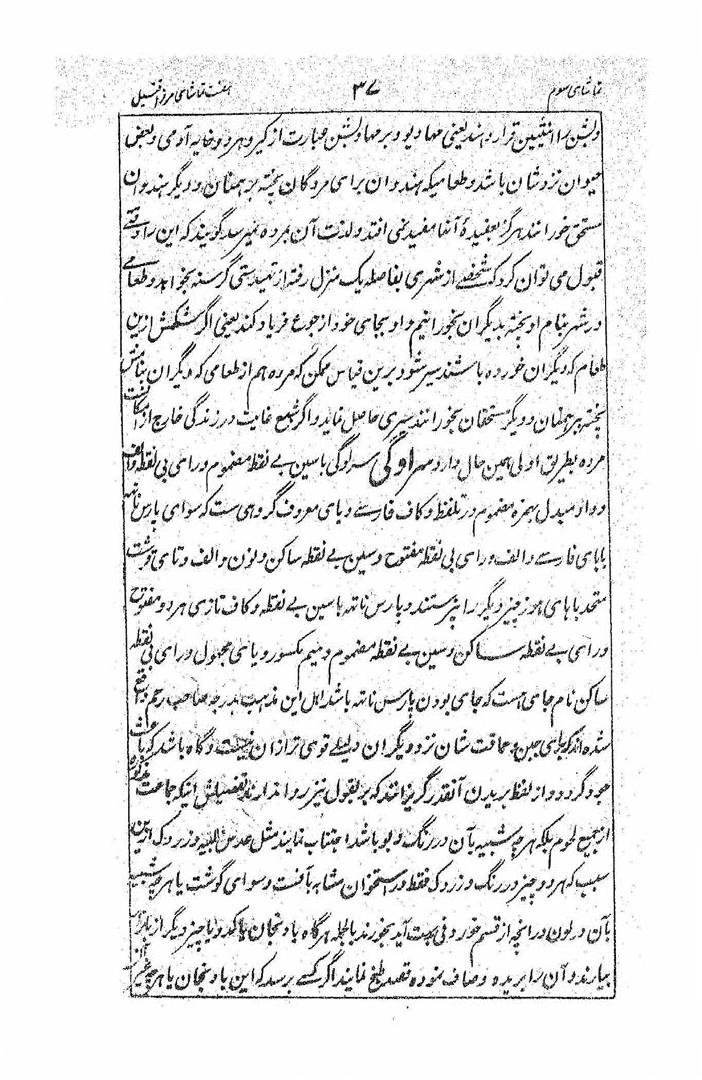 تماشای سوم ۳۷ هفت تماشای مرزا قتیل
و بشن را انثیین قرار دهند یعنی مهادیو و برمها و بشن عبارت از کیر و هر دو خایه آدمی و بعض
حیوان نزد شان باشد و طعامیکه هندوان برای مردگان پخته برهمنان و دیگر هندوان
مستحق خورانند هرگز بعقیدهٔ آنها مفید نمی افتد و لذت آن بمرده نمیرسد گویند که این را وقتی
قبول می توان کرد که شخصی از شهری بفاصله یک منزل رفته از تهیدستی گرسنه بخوابد و طعامی
در شهر بنام او پخته بدیگران بخورانیم و او بجای خود از جوع فریاد کند یعنی اگر شکمش ازین
طعام که دیگران خورده باشند سیر شود برین قیاس ممکن که مرده هم از طعامی که دیگران بنامش
پخته ببرهمنان و دیگر مستحقان بخورانند سیری حاصل نماید و اگر شبع غایت در زندگی خارج از امکانست
مرده بطریق اولی همین حال دارد سراوگی سراوگی باسین بے نقطه مضموم و رای بی نقطه و الف
و واو مبدل بهمزه مضموم در تلفظ و کاف فارسے و یای معروف گروهی ست که سوای پارس ناتهه
بابای فارسے و الف و رای بی نقطه مفتوح و سین بے نقطه ساکن و نون و الف و تای قرشت
متحد باهای هوز چیز دیگر را نپرستند و پارس ناتهه باسین بے نقطه و کاف تازی هر دو مفتوح
و رای بے نقطه ساکن و سین بے نقطه مضموم و میم مکسور و یای مجهول و رای بی نقطه
ساکن نام جای هست که جای بودن پارس ناتهه باشد اهل این مذهب بدرجه صاحب رحم واقع
شده اند که برای جبن و حماقت شان نزد دیگران دلیلے قوی تر ازان نیست و گاه باشد که باعث
هجو گردد و از لفظ بریدن آنقدر گریزانند که بر بقول نیز روا ندارند تفصیلش اینکه جماعت مذکوره
از جمیع لحوم بلکه هر چه شبیه بآن در رنگ و بو باشد اجتناب نمایند مثل عدس و زردک ازین
سبب که هر دو چیز در رنگ و زردک فقط در استخوان مشابه بآنست و سوای گوشت یا هر چه شبیه
بآن در لون در آنچه از قسم خوردنی بدست آید بخورند بالجمله هرگاه بادنجان یا کدو یا چیز دیگر از بازار
بیارند و آن را بریده و صاف نموده قصد طبخ نمایند اگر کسے پرسد که این بادنجان یا هر چه غیر